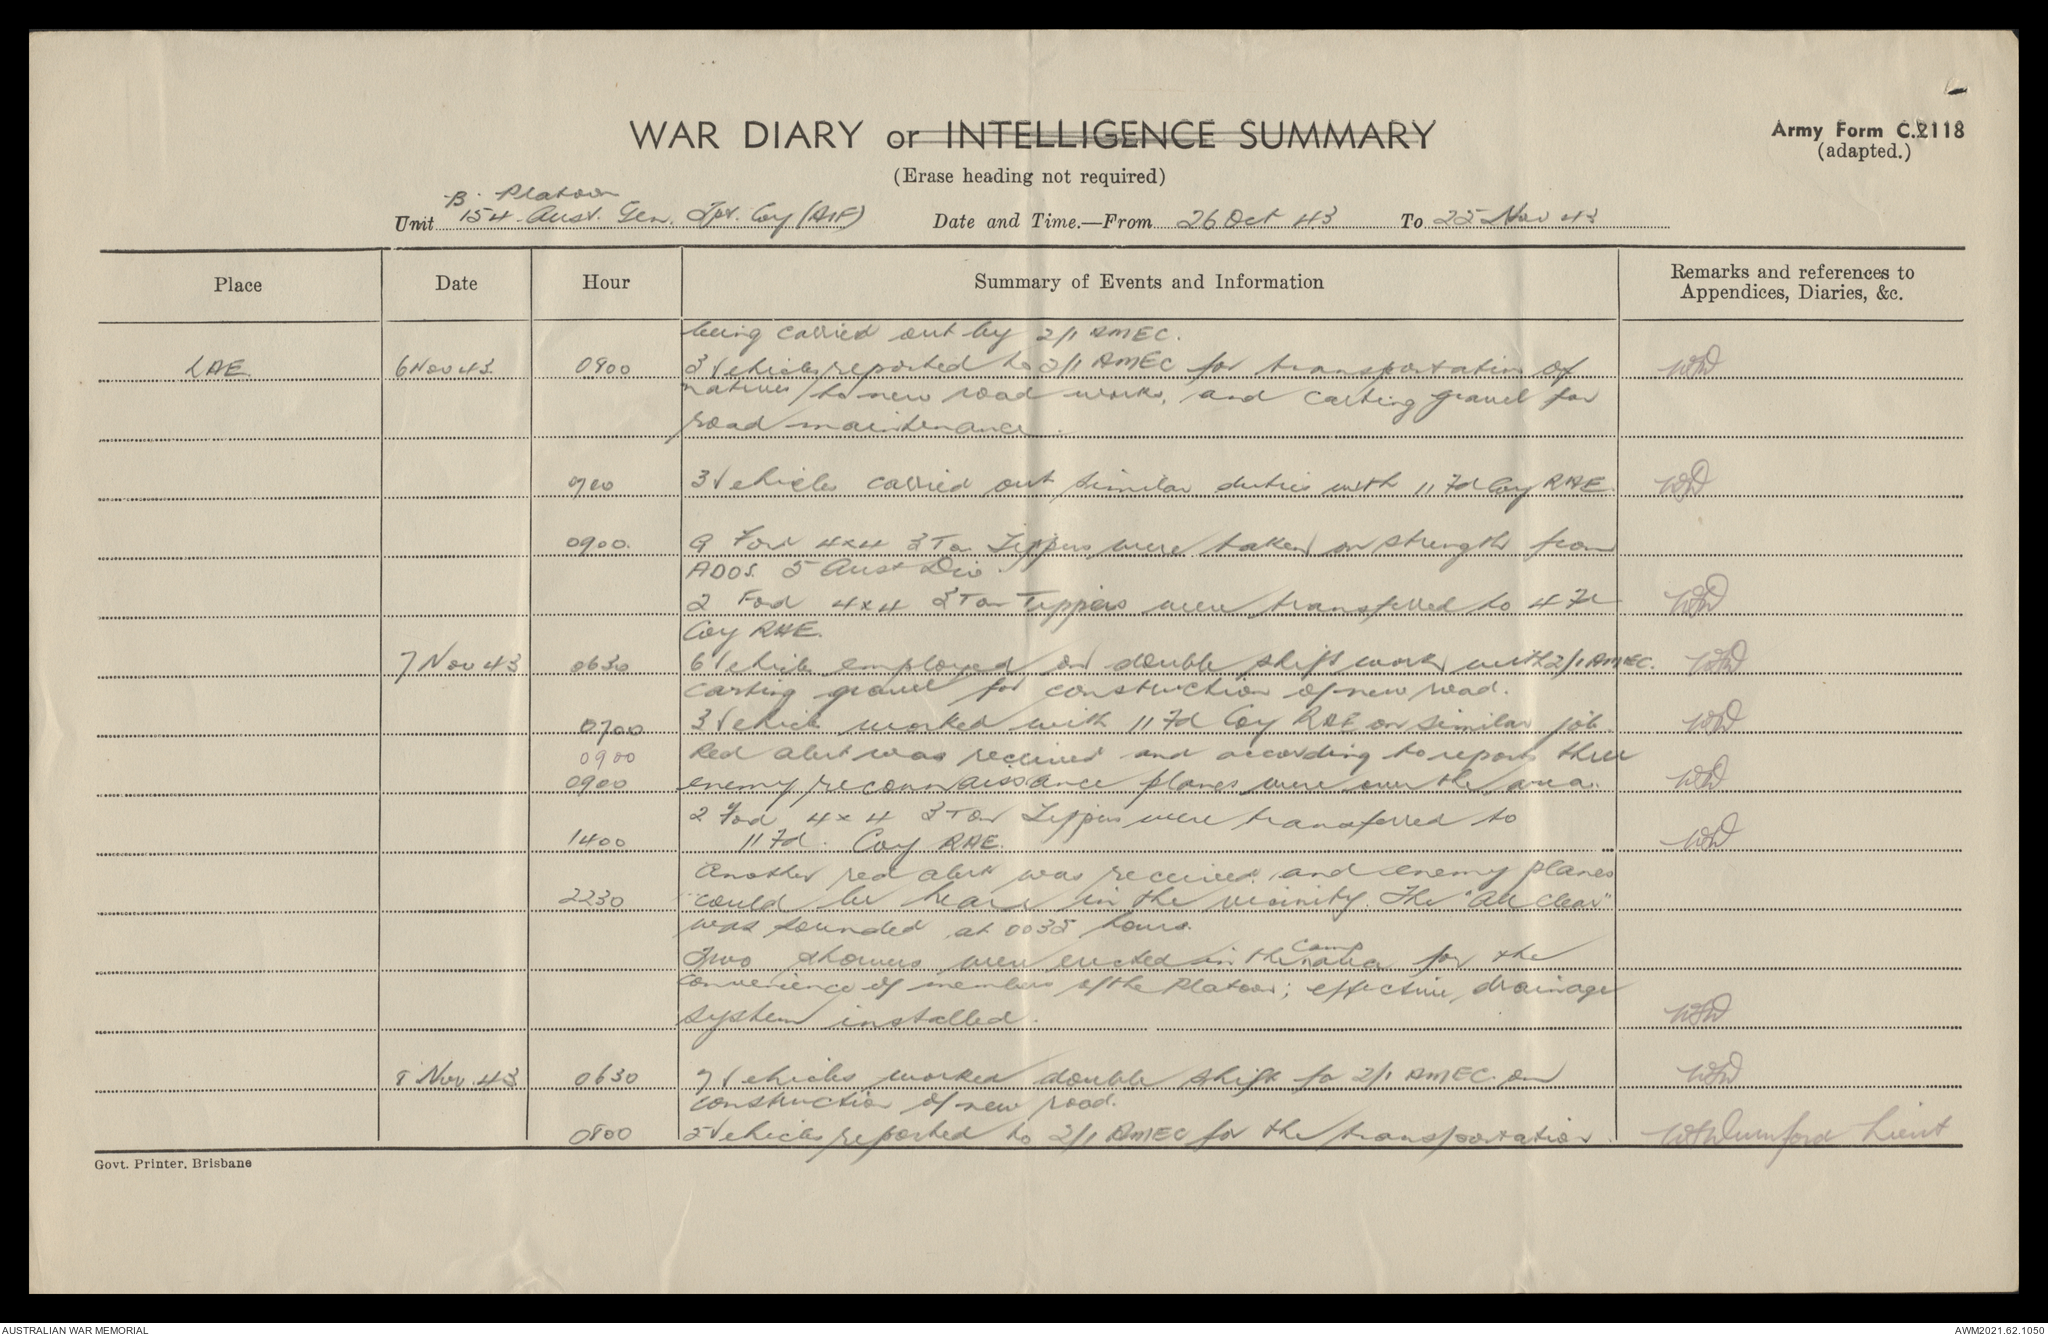 WAR DIARY or INTELLIGENCE SUMMARY
Army Form C.2118
(adapted.)
(Erase heading not required)
B. Platoon
Unit 154 Aust. Gen. Tpt. Coy (AIF) Date and Time.—From 26 Oct 43 To 25 Nov 43
Place Date Hour Summary of Events and Information Remarks and references to
Appendices, Diaries, &c.
being carried out by 2/1 AMEC.
LAE 6 Nov 43. 0900 3 Vehicles reported to 2/1 AMEC for transportation of WJD
natives to new road works, and carting gravel for
road maintenance.
0700 3 Vehicles carried out similar duties with 11 Fd Coy RAE. WJD
0900. 9 Ford 4x4 3 Ton Tippers were taken on strength from
ADOS. 5 Aust Div.
2 Ford 4x4 3 Ton Tippers were transferred to 4 Fd WJD
Coy RAE.
7 Nov 43 0630 6 Vehicles employed on double shift work with 2/1 AMEC. WJD
carting gravel for construction of new road.
0700 3 Vehicles worked with 11 Fd Coy RAE on similar job. WJD
0900 Red alert was received and according to reports three
0900 enemy reconnaissance planes were over the area. WJD
2 Ford 4x4 3 Ton Tippers were transferred to
1400 11 Fd. Coy RAE. WJD
Another red alert was received and enemy planes
2230 could be heard in the vicinity. The "All Clear"
was sounded at 0035 hours.
Two showers were erected in the camp area for the
convenience of members of the Platoon; effective drainage
system installed. WJD
8 Nov. 43 0630 7 Vehicles worked double shift for 2/1 AMEC. on WJD
construction of new road.
0800 5 Vehicles reported to 2/1 AMEC for the transportation Lieut
Govt. Printer, Brisbane
AUSTRALIAN WAR MEMORIAL
AWM2021.62.1050